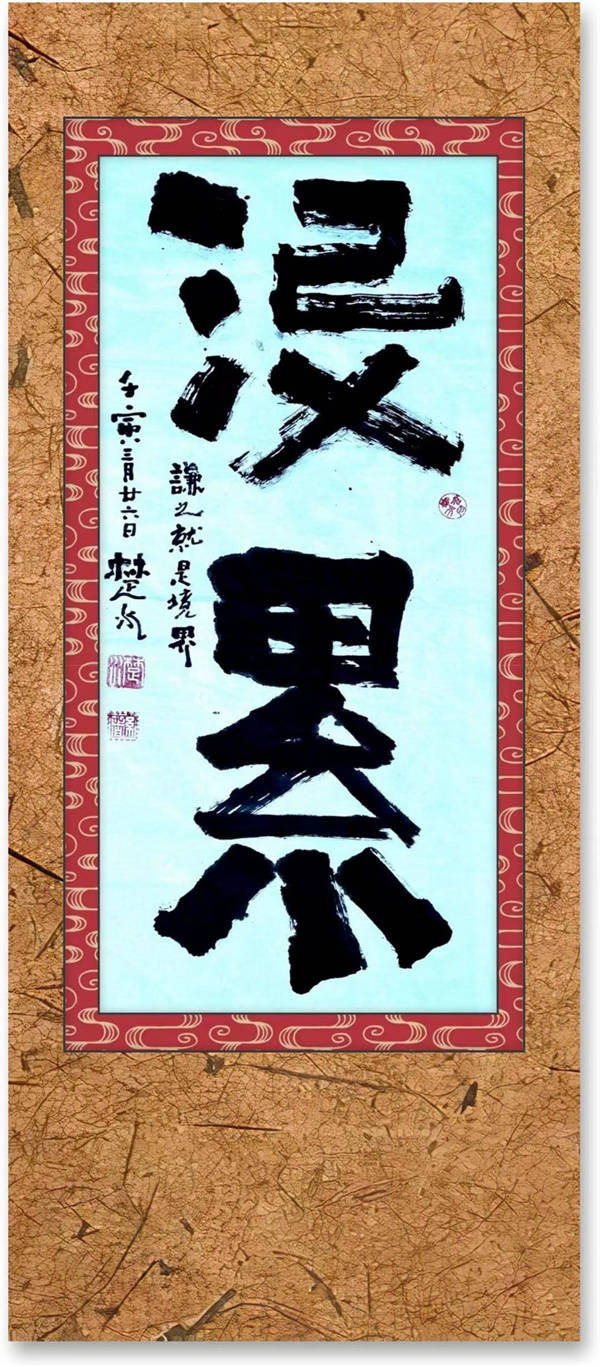 没累
謙之就是境界
壬寅三月廿六日 楚水